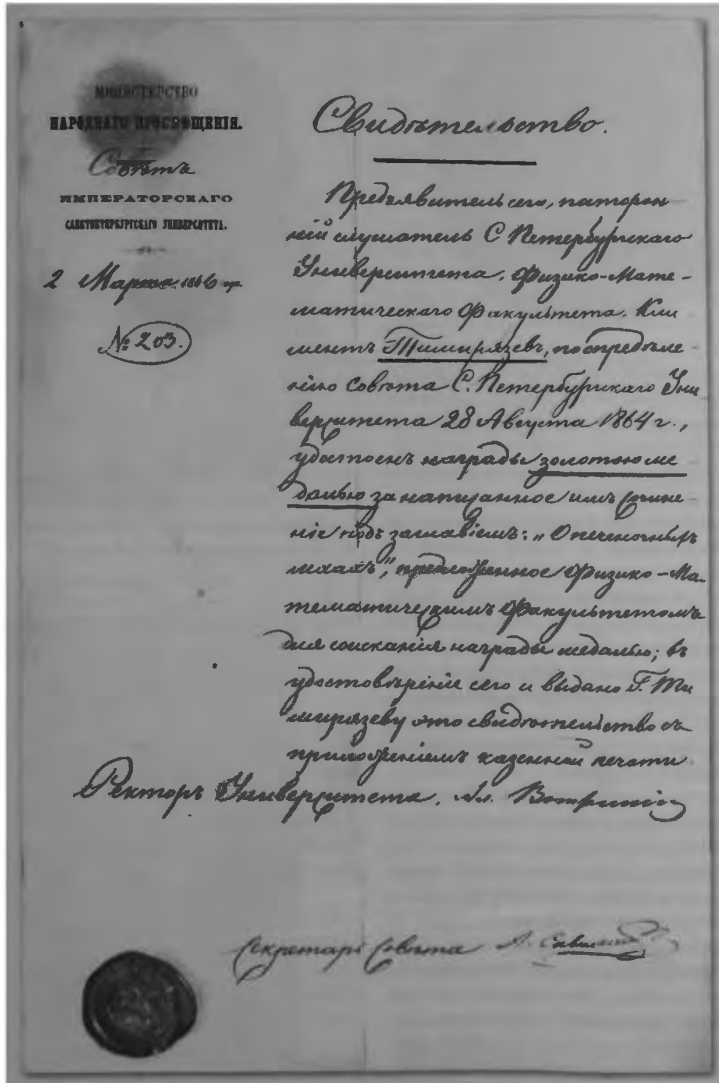 МИНИСТЕРСТВО
НАРОДНАГО ПРОСВѢЩЕНІЯ.
Совѣтъ
ИМПЕРАТОРСКАГО
САНКТПЕТЕРБУРГСКАГО УНИВЕРСИТЕТА.
2 Марта 1866 г.
№ 203.
Свидѣтельство.
Предъявитель сего, посторон
ній слушатель С Петербургскаго
Университета, Физико-Мате-
матическаго Факультета, Кли
ментъ Тимирязевъ, по опредѣле
нію Совѣта С. Петербургскаго Уни
верситета 28 Августа 1864 г.,
удостоенъ награды золотою ме
далью за написанное имъ сочине
ніе подъ заглавіемъ: „О печеночныхъ
мхахъ", предложенное Физико-Ма
тематическимъ Факультетомъ
для соисканія награды медалью; въ
удостовѣреніе сего и выдано Г. Ти
мирязеву это свидѣтельство съ
приложеніемъ казенной печати
Ректоръ Университета,
Секретарь Совѣта А.